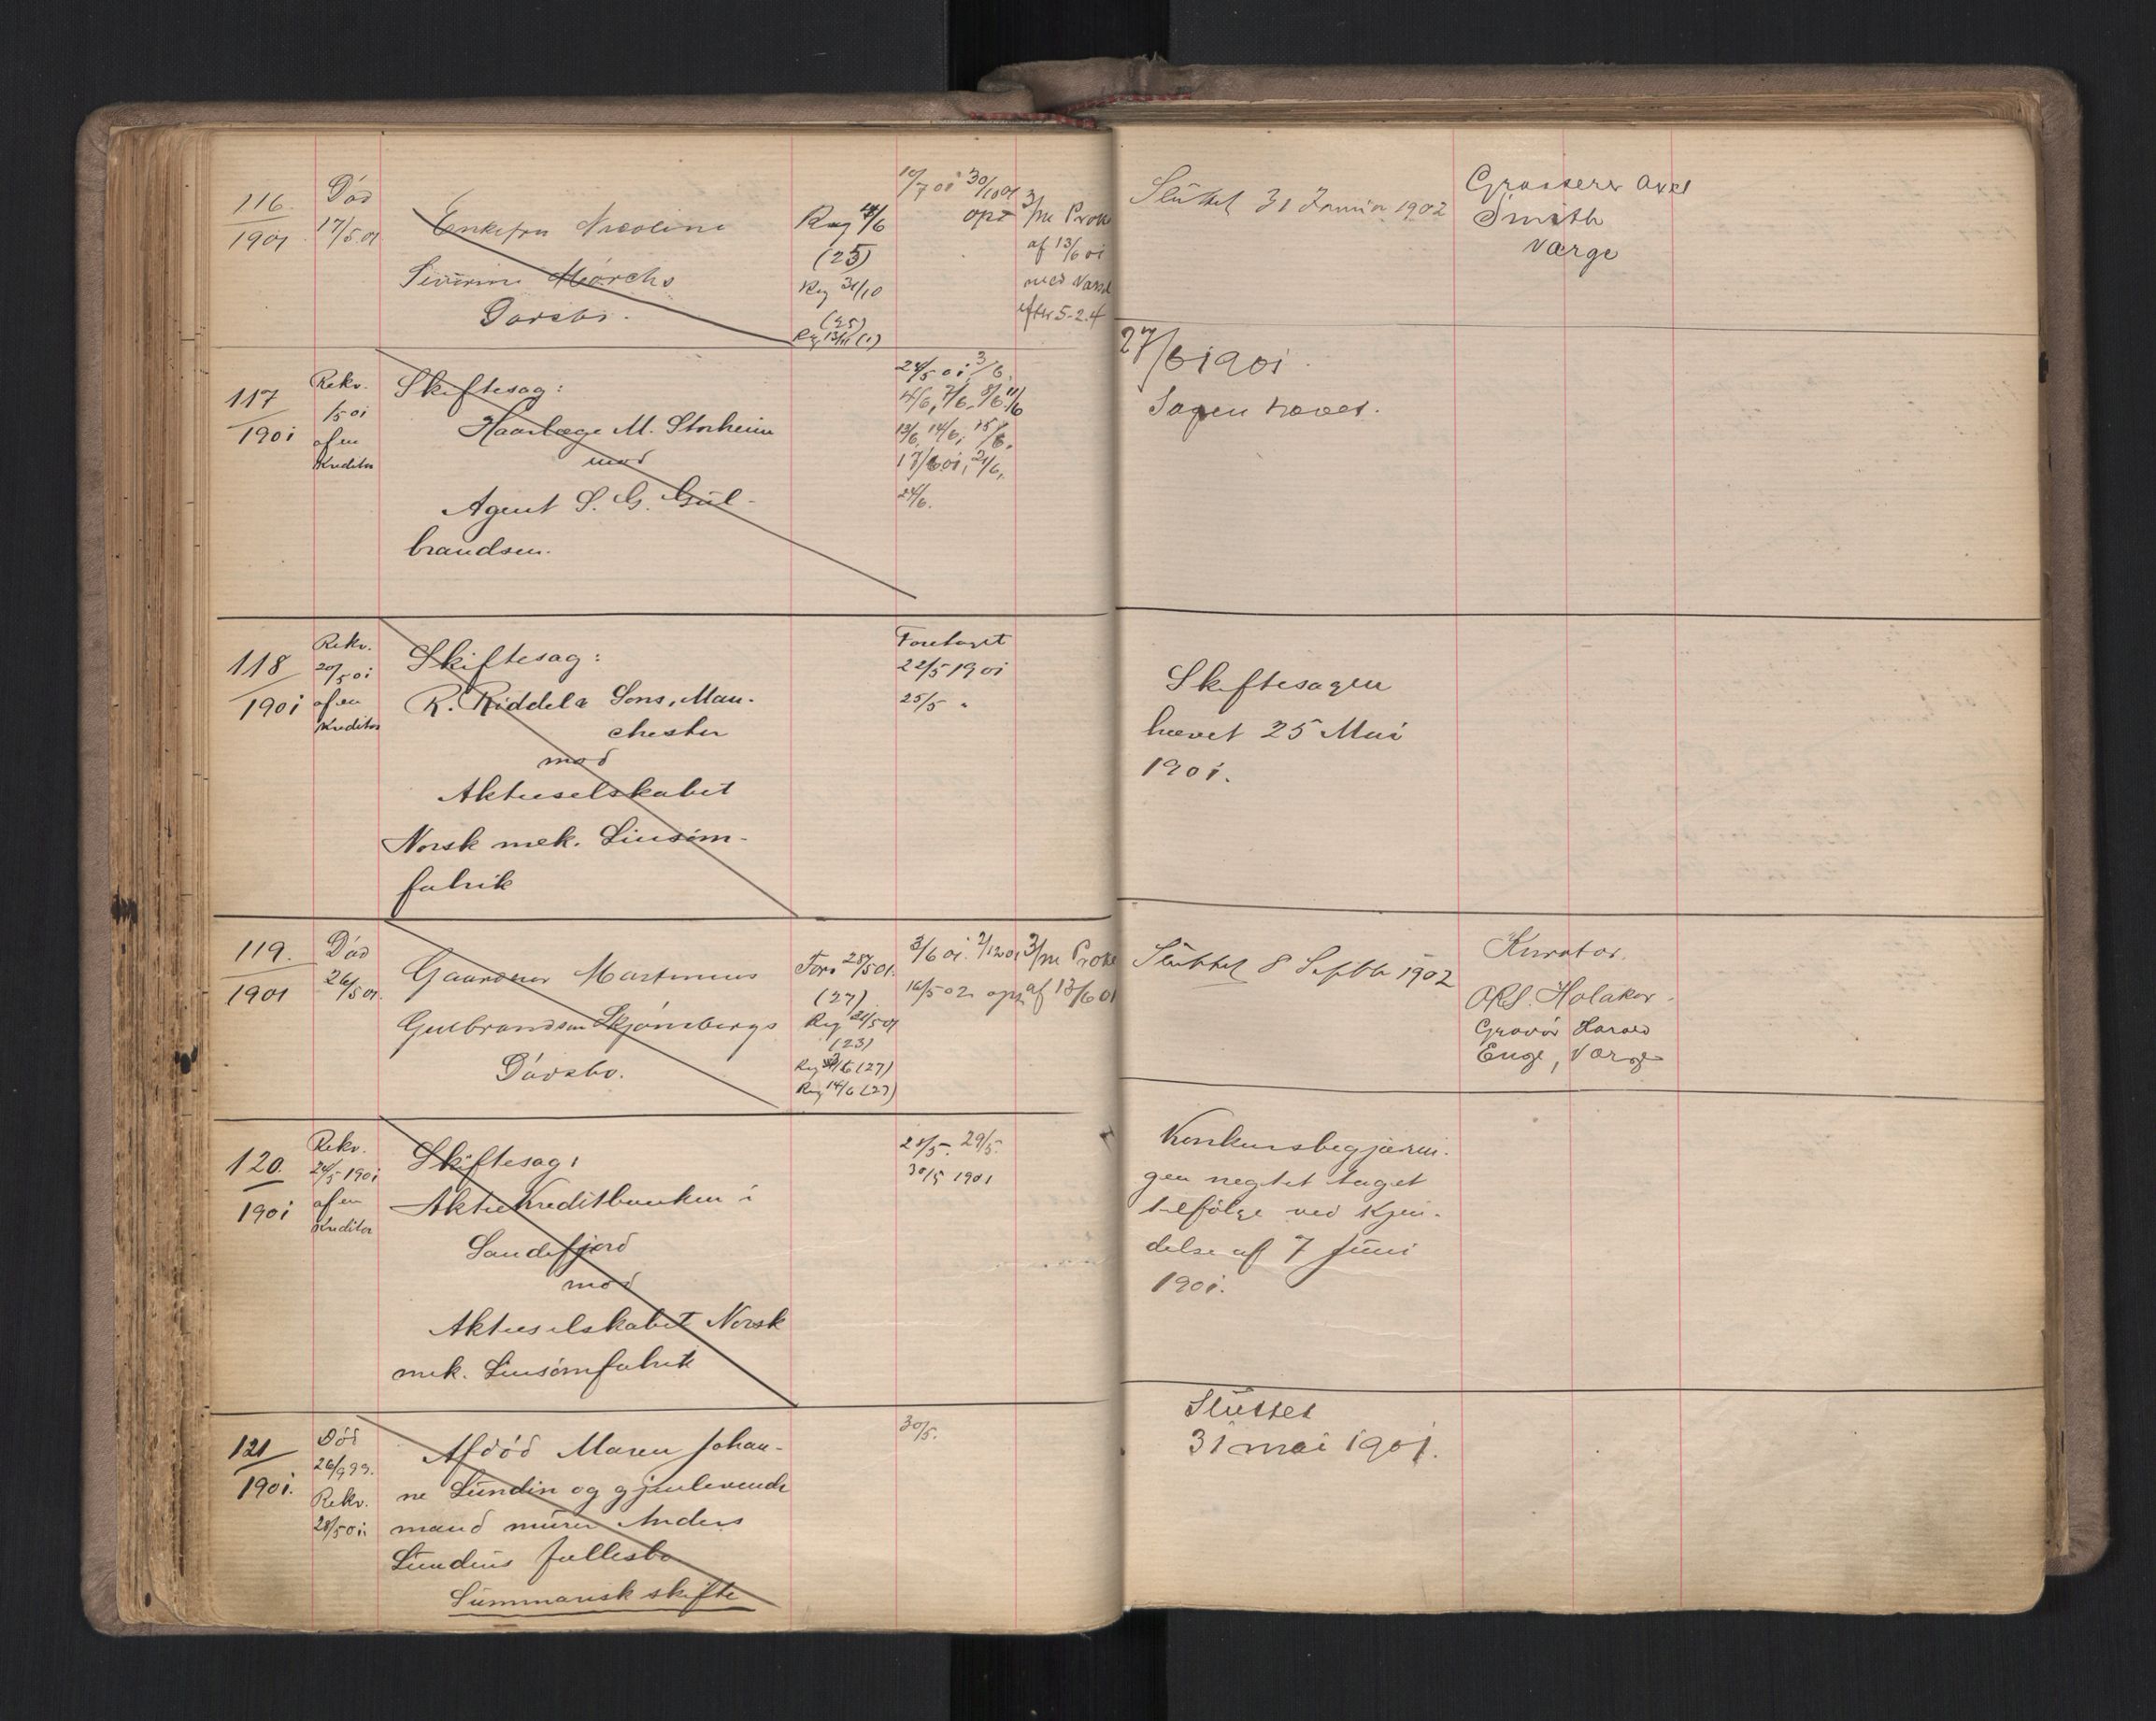 116.
1901
Död
17/5 01
Enkefru Nicoline
Severine Mørchs
Dødsbo.
Reg 14/6
(25)
Reg 31/10
(25)
Reg 13/11 (1)
10/7 01 30/10 01
opt
3/m Prok
af 13/6 01
med Varsel
efter 5-2.4
Sluttet 31 Januar 1902
Grosserer Axel
Smith
Værge
117
1901
Rekv.
/5 01
af en
Kreditor
Skiftesag:
Haarlæge M. Storheim
mod
Agent S. G. Gul-
brandsen.
24/5 01, 3/6.
4/6, 7/6, 8/6 11/6
13/6, 14/6, 15/6,
17/6 01, 21/6,
24/6.
27/6 1901.
Sagen hævet.
118
1901
Rekv.
20/5 01
af en
Kreditor
Skiftesag:
R. Riddel & Sons, Man-
chester
mod
Aktieselskabet
Norsk mek. Linsöm-
fabrik
Foretaget
22/5 1901
25/5 "
Skiftesagen
hævet 25 Mai
1901.
119.
1901
Död
26/5 01.
Gaardener Martinius
Gulbrandsen Skjønsbergs
Dødsbo.
Forr 28/5 01.
(27)
Reg 28/5 01
(23)
Reg /6 (27)
Reg 14/6 (27)
3/6 01. 2/12 01
16/5 02 opt
3/m Prok
af 13/6 01
Sluttet 8 Septbr 1902
Kurator.
ORS. Holaker.
Gravør Harald
Enge, Værge
120.
1901
Rekv.
24/5 1901
af en
Kreditor
Skiftesag:
Aktie Kreditbanken i
Sandefjord
mod
Aktieselskabet Norsk
mek. Linsömfabrik
28/5. 29/5.
30/5 1901
Konkursbegjærin-
gen negtet taget
tilfölge ved Kjen-
delse af 7 Juni
1901.
121
1901.
Död
26/9 99.
Rekv.
28/5 01.
Afdöd Maren Johan-
ne Lundin og gjenlevende
mand murer Anders
Lundins fællesbo
Summarisk skifte
30/5.
Sluttet
31 mai 1901.